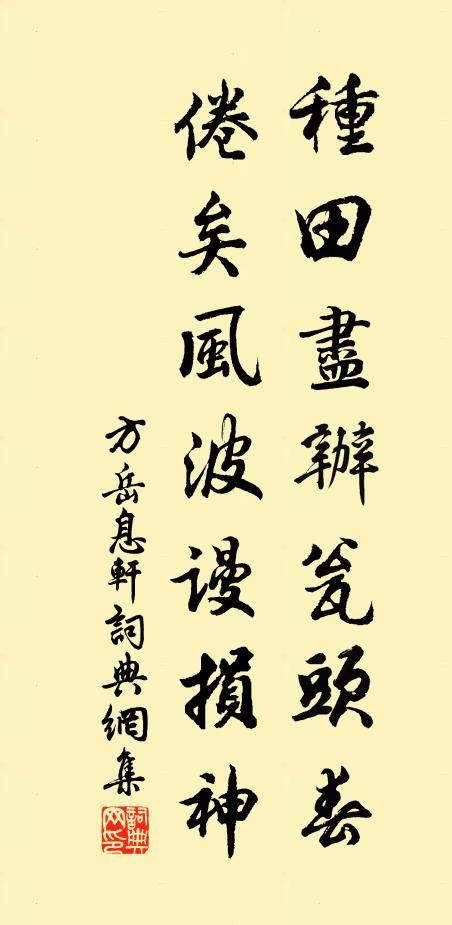 種田盡辦瓮頭春
倦矣風波謾損神
方岳息軒詞典網集
詞典网印